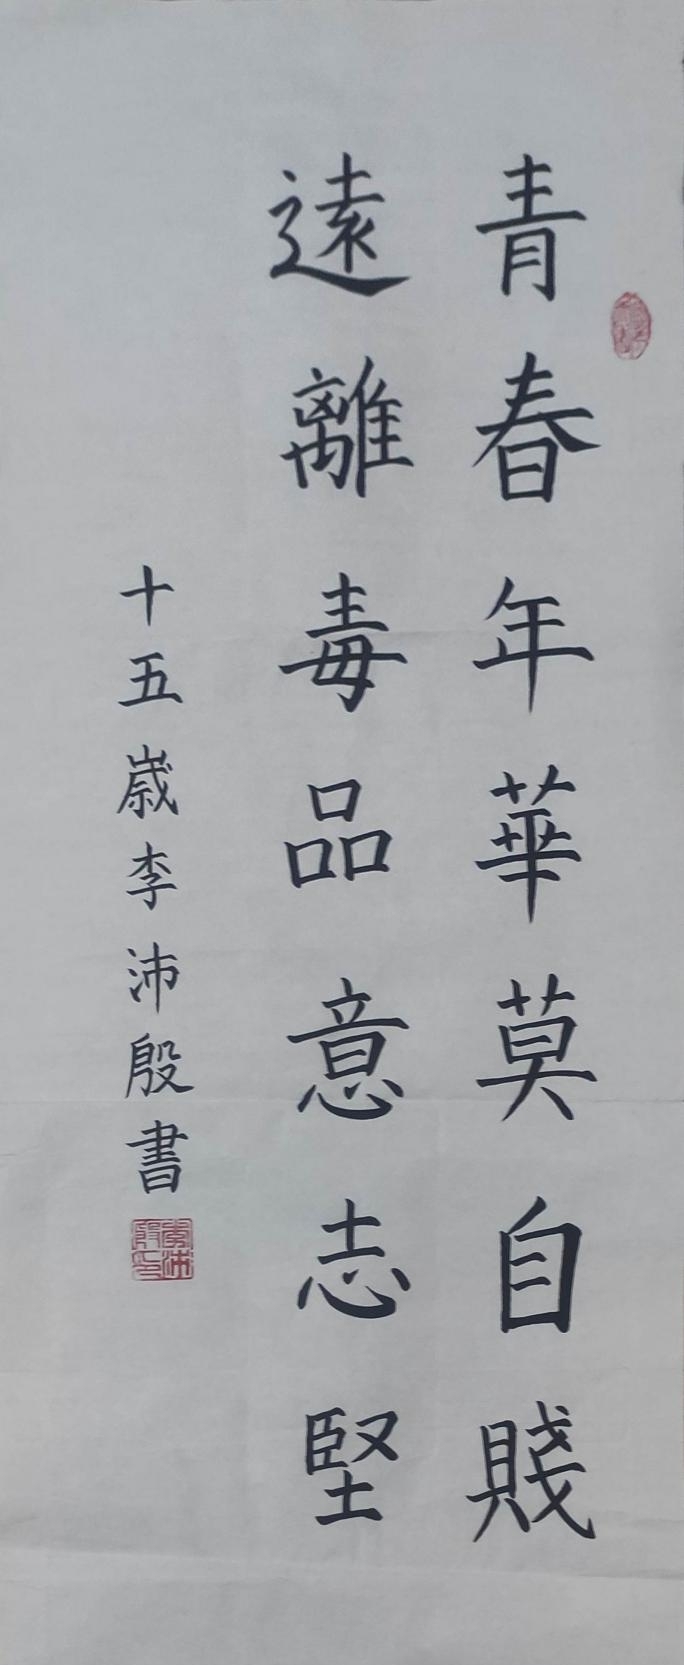 青春年華莫自賤
遠離毒品意志堅
十五歲李沛殷書